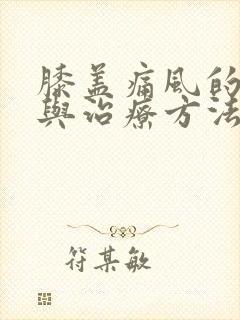 膝盖痛風的
與治療方法
符某敏